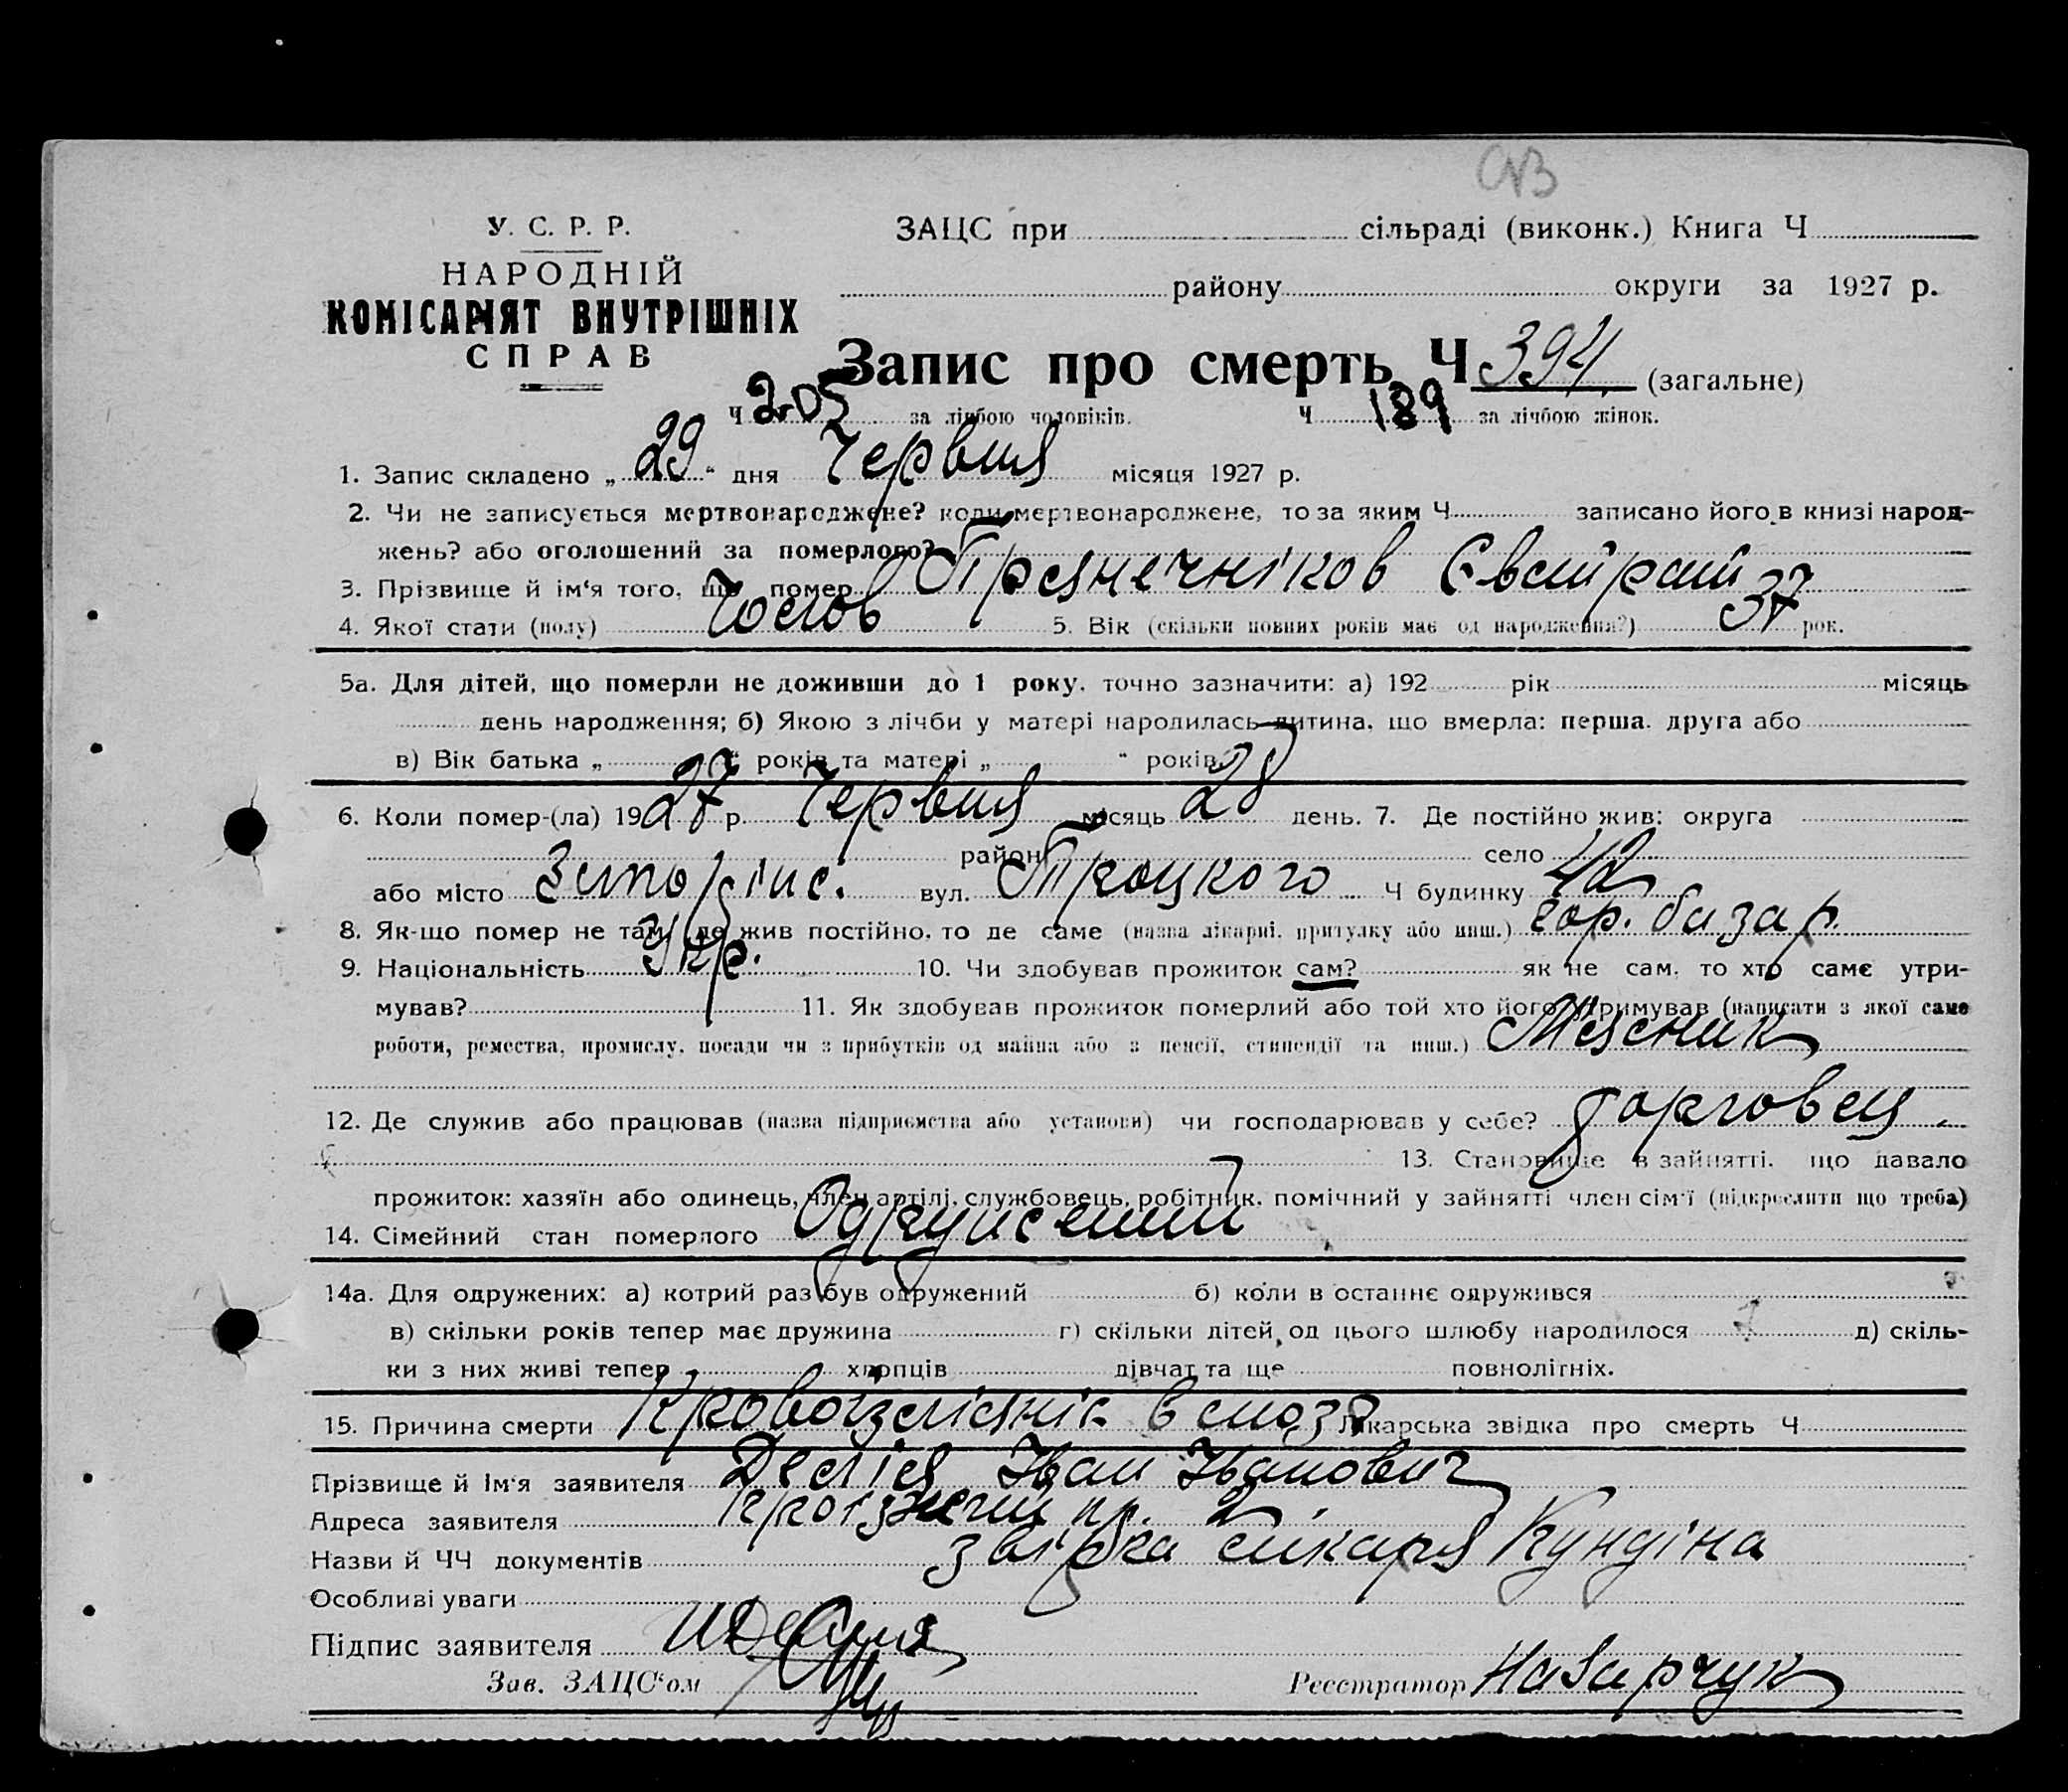 У. С. Р. Р.
НАРОДНІЙ
КОМІСАРІЯТ ВНУТРІШНІХ
СПРАВ
ЗАЦС при сільраді (виконк.) Книга Ч
району округи за 1927 р.
Запис про смерть Ч 394 (загальне)
Ч 205 за лічбою чоловіків. Ч 189 за лічбою жінок.
1. Запис складено „ 29 “ дня Червня місяця 1927 р.
2. Чи не записується мертвонароджене? коли мертвонароджене, то за яким Ч записано його в книзі народ-
жень? або оголошений за померлого?
3. Прізвище й ім'я того, що помер Прянечніков
4. Якої стати (полу) Чолов 5. Вік (скільки повних років має од народження?) 37 рок.
5а. Для дітей, що померли не доживши до 1 року, точно зазначити: а) 192 рік місяць
день народження; б) Якою з лічби у матері народилась дитина, що вмерла: перша, друга або
в) Вік батька „ “ років та матері „ “ років
6. Коли помер-(ла) 1927 р. Червня місяць 28 день. 7. Де постійно жив: округа
район село
або місто вул. Троцкого Ч будинку 42
8. Як-що помер не там, де жив постійно, то де саме (назва лікарні, притулку або инш.) гор. базар.
9. Національність Укр. 10. Чи здобував прожиток сам? як не сам, то хто саме утри-
мував? 11. Як здобував прожиток померлий або той хто його утримував (написати з якої саме
роботи, ремества, промислу, посади чи з прибутків од майна або з пенсії, стипендії та инш.) Мясник
12. Де служив або працював (назва підприємства або установи) чи господарював у себе? торговец.
13. Становище в зайнятті, що давало
прожиток: хазяїн або одинець, член артілі, службовець, робітник, помічний у зайнятті член сім'ї (підкреслити що треба)
14. Сімейний стан померлого Одружений
14а. Для одружених: а) котрий раз був одружений б) коли в останнє одружився
в) скільки років тепер має дружина г) скільки дітей од цього шлюбу народилося д) скіль-
ки з них живі тепер хлопців дівчат та ще повнолітніх.
15. Причина смерти в мозг Лікарська звідка про смерть Ч
Прізвище й ім'я заявителя Іван Іванович
Адреса заявителя
Назви й ЧЧ документів звідка лікаря Кундіна
Особливі уваги
Підпис заявителя
Зав. ЗАЦС'ом Реєстратор Назарчук